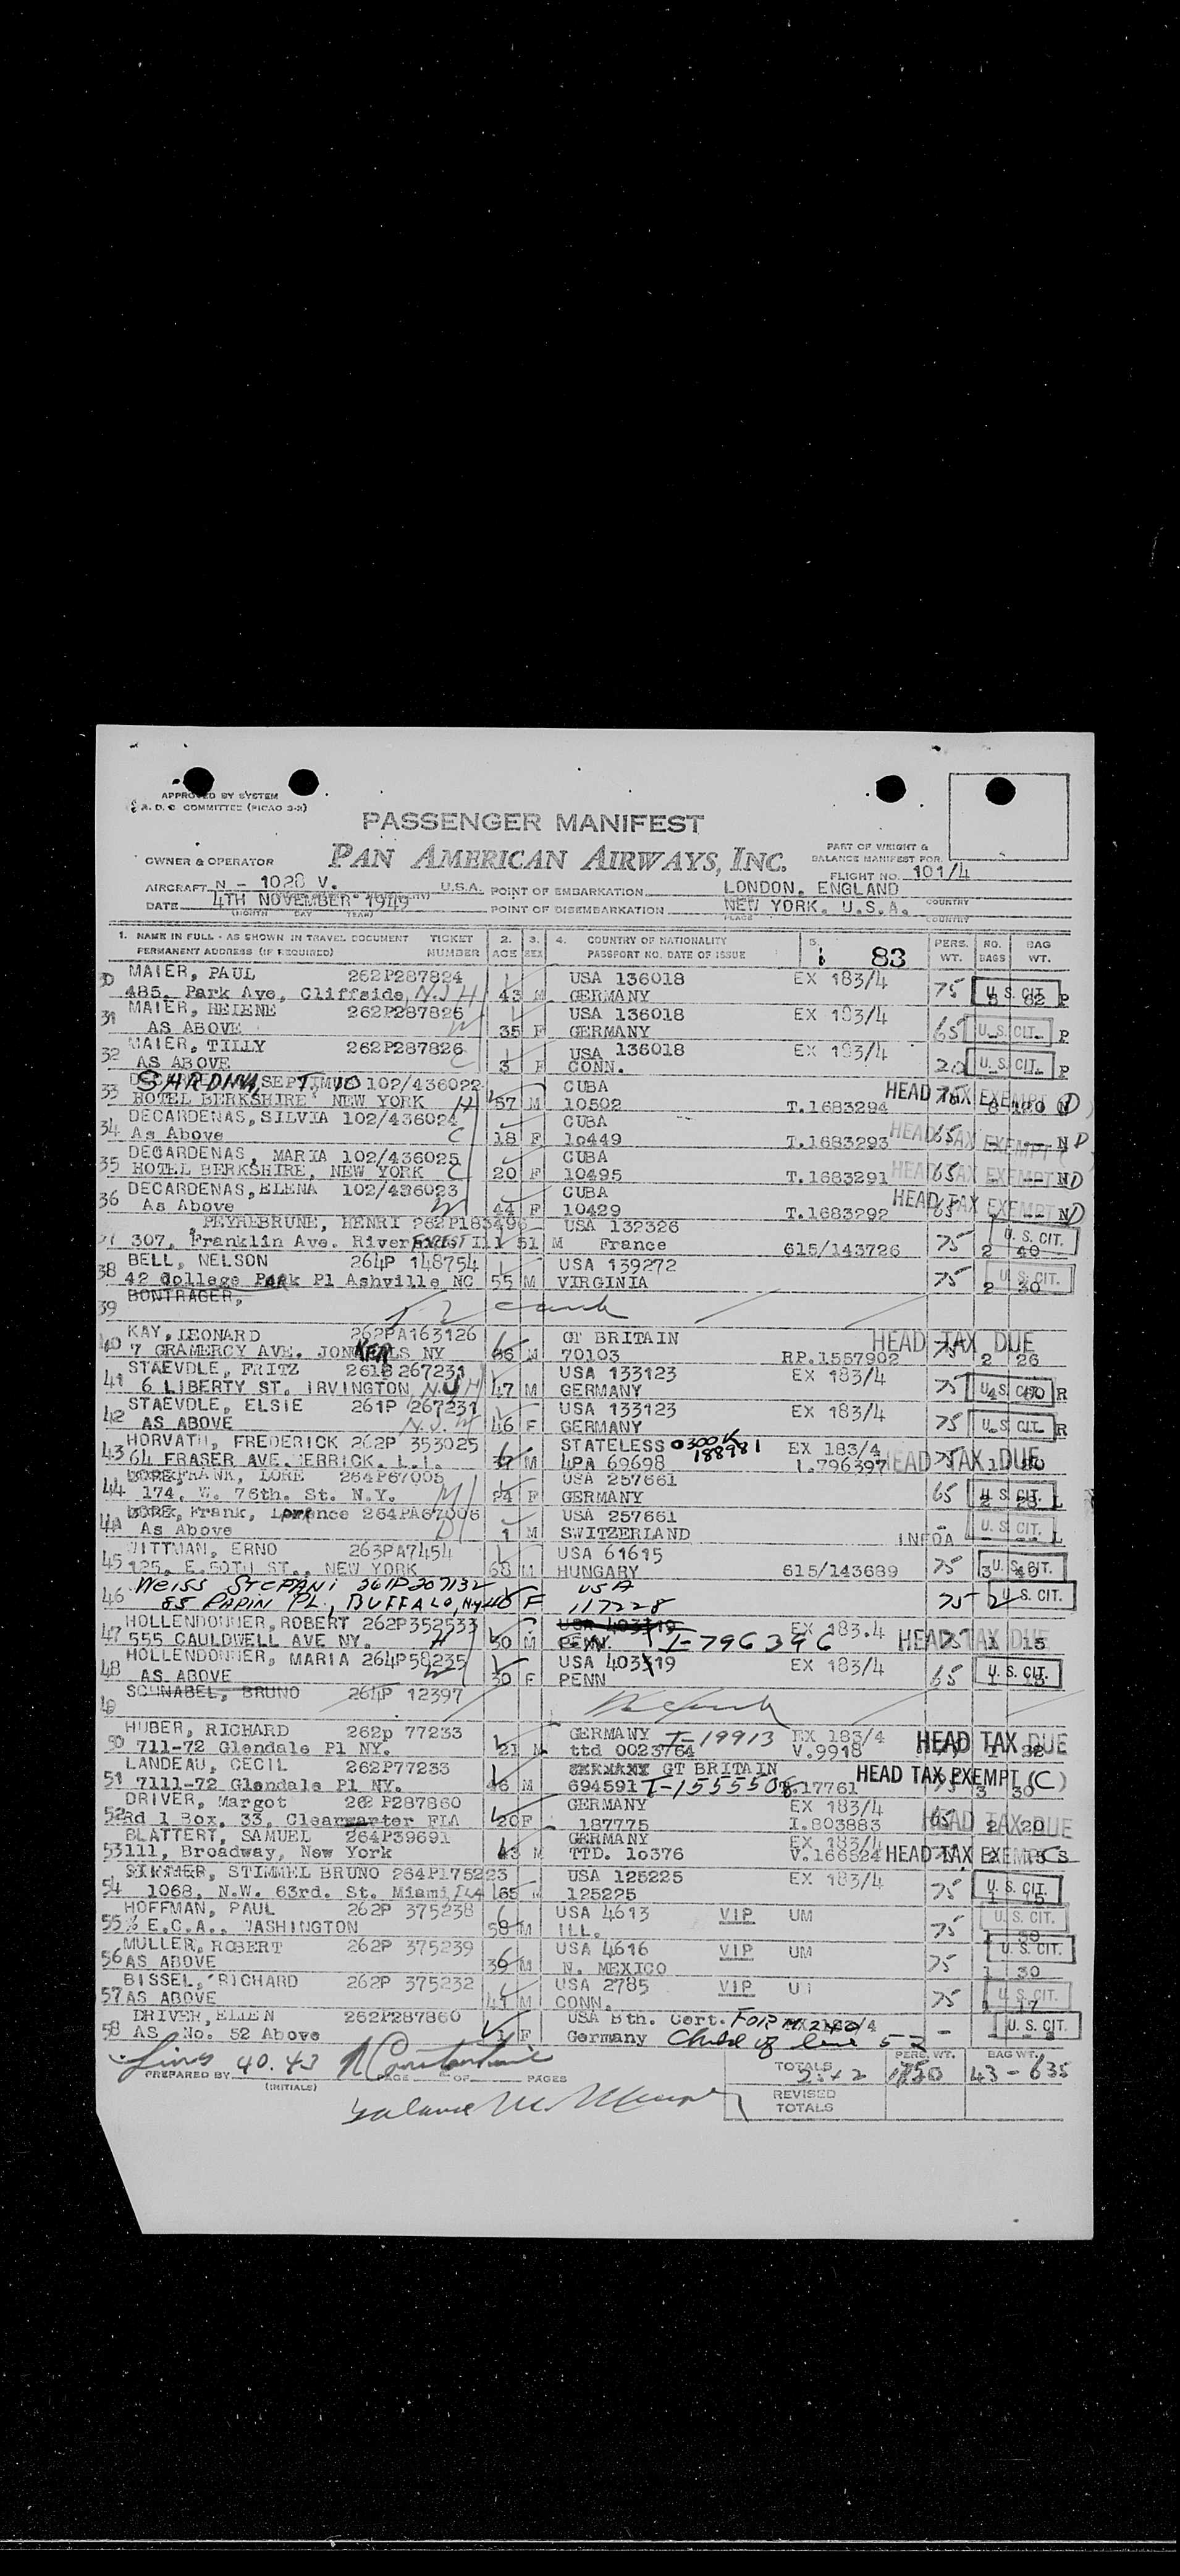 APPROVED BY SYSTEM
A. D. C. COMMITTEE (PICAO 3-3)
PASSENGER MANIFEST
OWNER & OPERATOR PAN AMERICAN AIRWAYS, INC. PART OF WEIGHT & BALANCE MANIFEST FOR
FLIGHT NO. 101/4
AIRCRAFT N - 1028 V. U.S.A. POINT OF EMBARKATION LONDON, ENGLAND
COUNTRY
DATE 4TH NOVEMBER 1949 POINT OF DISEMBARKATION NEW YORK. U.S.A.
(MONTH DAY YEAR) PLACE COUNTRY
1. NAME IN FULL - AS SHOWN IN TRAVEL DOCUMENT TICKET 2. 3. 4. COUNTRY OF NATIONALITY 5. PERS. NO. BAG
PERMANENT ADDRESS (IF REQUIRED) NUMBER AGE SEX PASSPORT NO. DATE OF ISSUE 83 WT. BAGS WT.
30 MAIER, PAUL 262P287824 USA 136018 EX 183/4
485, Park Ave, Cliffside, N.J H 43 M GERMANY 75 U.S. CIT. P
31 MAIER, HELENE 262P287826 USA 136018 EX 183/4
AS ABOVE W 35 F GERMANY 65 U.S. CIT. P
32 MAIER, TILLY 262P287826 USA 136018 EX 183/4
AS ABOVE C 3 F CONN. 20 U.S. CIT. P
33 SARDINA, SEPTIMIO 102/436022 CUBA HEAD TAX EXEMPT D
HOTEL BERKSHIRE NEW YORK H 57 M 10502 T.1683294 N
34 DECARDENAS, SILVIA 102/436024 CUBA HEAD TAX EXEMPT
As Above C 18 F 10449 T.1683293 65 N D
35 DECARDENAS, MARIA 102/436025 CUBA HEAD TAX EXEMPT
HOTEL BERKSHIRE, NEW YORK C 20 F 10495 T.1683291 65 N D
36 DECARDENAS, ELENA 102/436023 CUBA HEAD TAX EXEMPT
As Above W 44 F 10429 T.1683292 65 N D
PEYREBRUNE, HENRI 262P183496 USA 132326 U. S. CIT.
37 307, Franklin Ave. River Forest Ill 51 M France 615/143726 75 2 40
38 BELL, NELSON 264P 148754 USA 139272
42 College Park Pl Ashville NC 55 M VIRGINIA 75 U.S. CIT. 2 30
39 BONTRAGER,
40 KAY, LEONARD 262PA163126 GT BRITAIN HEAD TAX DUE
7 GRAMERCY AVE. NY M 70103 RP.1557902 75 2 26
41 STAEVDLE, FRITZ 261P 267231 USA 133123 EX 183/4
6 LIBERTY ST. IRVINGTON, N.J H 47 M GERMANY 75 U.S. CIT. R
42 STAEVDLE, ELSIE 261P 267231 USA 133123 EX 183/4
AS ABOVE N.J. W 46 F GERMANY 75 U.S. CIT. R
43 HORVATH, FREDERICK 262P 353025 STATELESS 0300K 188981 EX 183/4
64 FRASER AVE. MERRICK. L.I. M 4PA 69698 I.796397 HEAD TAX DUE
44 FRANK, LORE 264P67005 USA 257661
174. W. 76th. St. N.Y. M 24 F GERMANY 65 U.S. CIT. L
Frank, 264PA67006 USA 257661
As Above 1 M SWITZERLAND U.S. CIT. L
WITTMAN, ERNO 263PA7454 USA 61615
45 125. E.50TH ST., NEW YORK 68 M HUNGARY 615/143689 75 3 U.S. CIT. 40
46 Weiss Stepani 261P207132 USA
85 PAPIN PL., BUFFALO, NY 40 F 117228 75 2 U.S. CIT.
47 HOLLENDONNER, ROBERT 262P352533 USA 403319 EX 183.4
555 CAULDWELL AVE NY. H 30 M PENN. I-796396 HEAD TAX DUE 75 1 15
48 HOLLENDONNER, MARIA 264P58235 USA 403319 EX 183/4
AS ABOVE W 30 F PENN 65 U.S. CIT.
49 SCHNABEL, BRUNO 264P 12397
50 HUBER, RICHARD 262p 77233 GERMANY I-19913 EX 183/4 HEAD TAX DUE
711-72 Glendale Pl NY. 21 M ttd 0023764 V.9918
51 LANDEAU, CECIL 262P77233 GERMANY GT BRITAIN HEAD TAX EXEMPT (C)
7111-72 Glendale Pl NY. 46 M 694591 T-1555508 T.17761 75 3 30
52 DRIVER, Margot 262 P287860 GERMANY EX 183/4
Rd 1 Box. 33, Clearwarter FLA 20 F 187775 I.803883 65 HEAD TAX DUE 2 20
53 BLATTERT, SAMUEL 264P39691 GERMANY EX 183/4
111, Broadway, New York 43 M TTD. 10376 V.166324 HEAD TAX EXEMPT
54 STIMMEL BRUNO 264P175223 USA 125225 EX 183/4
1068, N.W. 63rd. St. Miami, Fla 65 M 125225 75 U.S. CIT. 1 15
HOFFMAN, PAUL 262P 375238 USA 4613 VIP UM U.S. CIT.
55 % E.C.A., WASHINGTON 58 M ILL. 75 1 30
MULLER, ROBERT 262P 375239 USA 4616 VIP UM U.S. CIT.
56 AS ABOVE 39 M N. MEXICO 75 1 30
BISSEL, RICHARD 262P 375232 USA 2785 VIP U.S. CIT.
57 AS ABOVE 41 M CONN. 75 1 17
DRIVER, ELLEN 262P287860 USA Bth. Cert.
58 AS No. 52 Above 1 F Germany Child of line 52 - U.S. CIT.
Lines 40. 43
PREPARED BY (INITIALS) PAGE OF PAGES
TOTALS 25+2 PERS. WT. 1750 BAG WT. 43 - 635
REVISED TOTALS